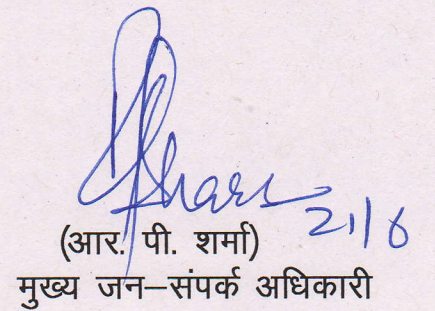 21/6
(आर. पी. शर्मा)
मुख्य जन–संपर्क अधिकारी